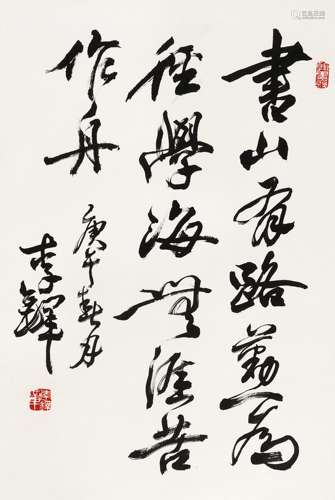 書山有路勤為
徑學海無涯苦
作舟
庚午春月
李鐸